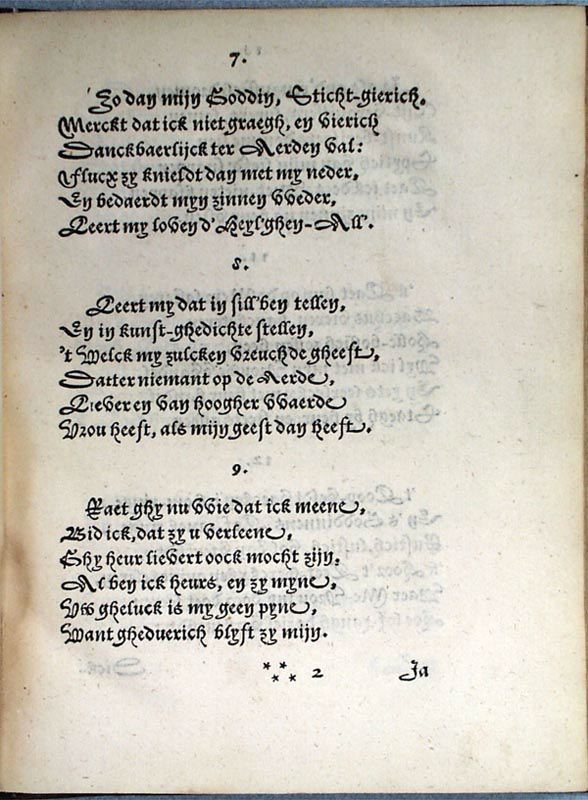 7.
Zo dan mijn Goddin, Sticht-gierich.
Merckt dat ick niet graegh, en vierich
Danckbaerlijck ter Aerden val:
Flucx zy knieldt dan met my neder,
En bedaerdt myn zinnen vveder,
Leert my loven d'Heyl'ghen-All'.
8.
Leert my dat in sill'ben tellen,
En in kunst-ghedichte stellen,
't Welck my zulcken vreuchde gheeft,
Datter niemant op de Aerde,
Liever en van hoogher vvaerde
Vrou heeft, als mijn geest dan heeft.
9.
Raet ghy nu vvie dat ick meene,
Bid ick, dat zy u verleene,
Ghy heur lievert oock mocht zijn.
Al ben ick heurs, en zy myne,
Uvv gheluck is my geen pyne,
Want gheduerich blyft zy mijn.
*** * 2 Ja